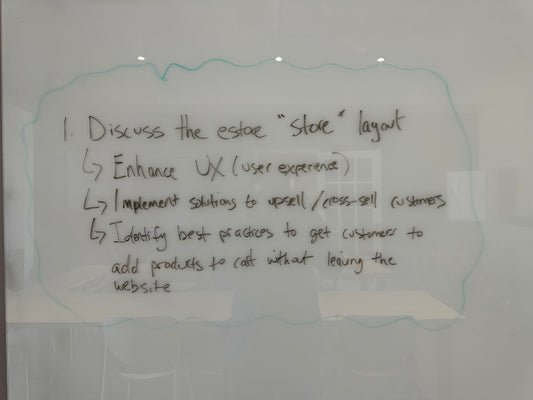 1. Discuss the estore "store" layout
↳ Enhance UX (user experience)
↳ Implement solutions to upsell/cross-sell customers
↳ Identify best practices to get customers to
add products to cart without leaving the
website